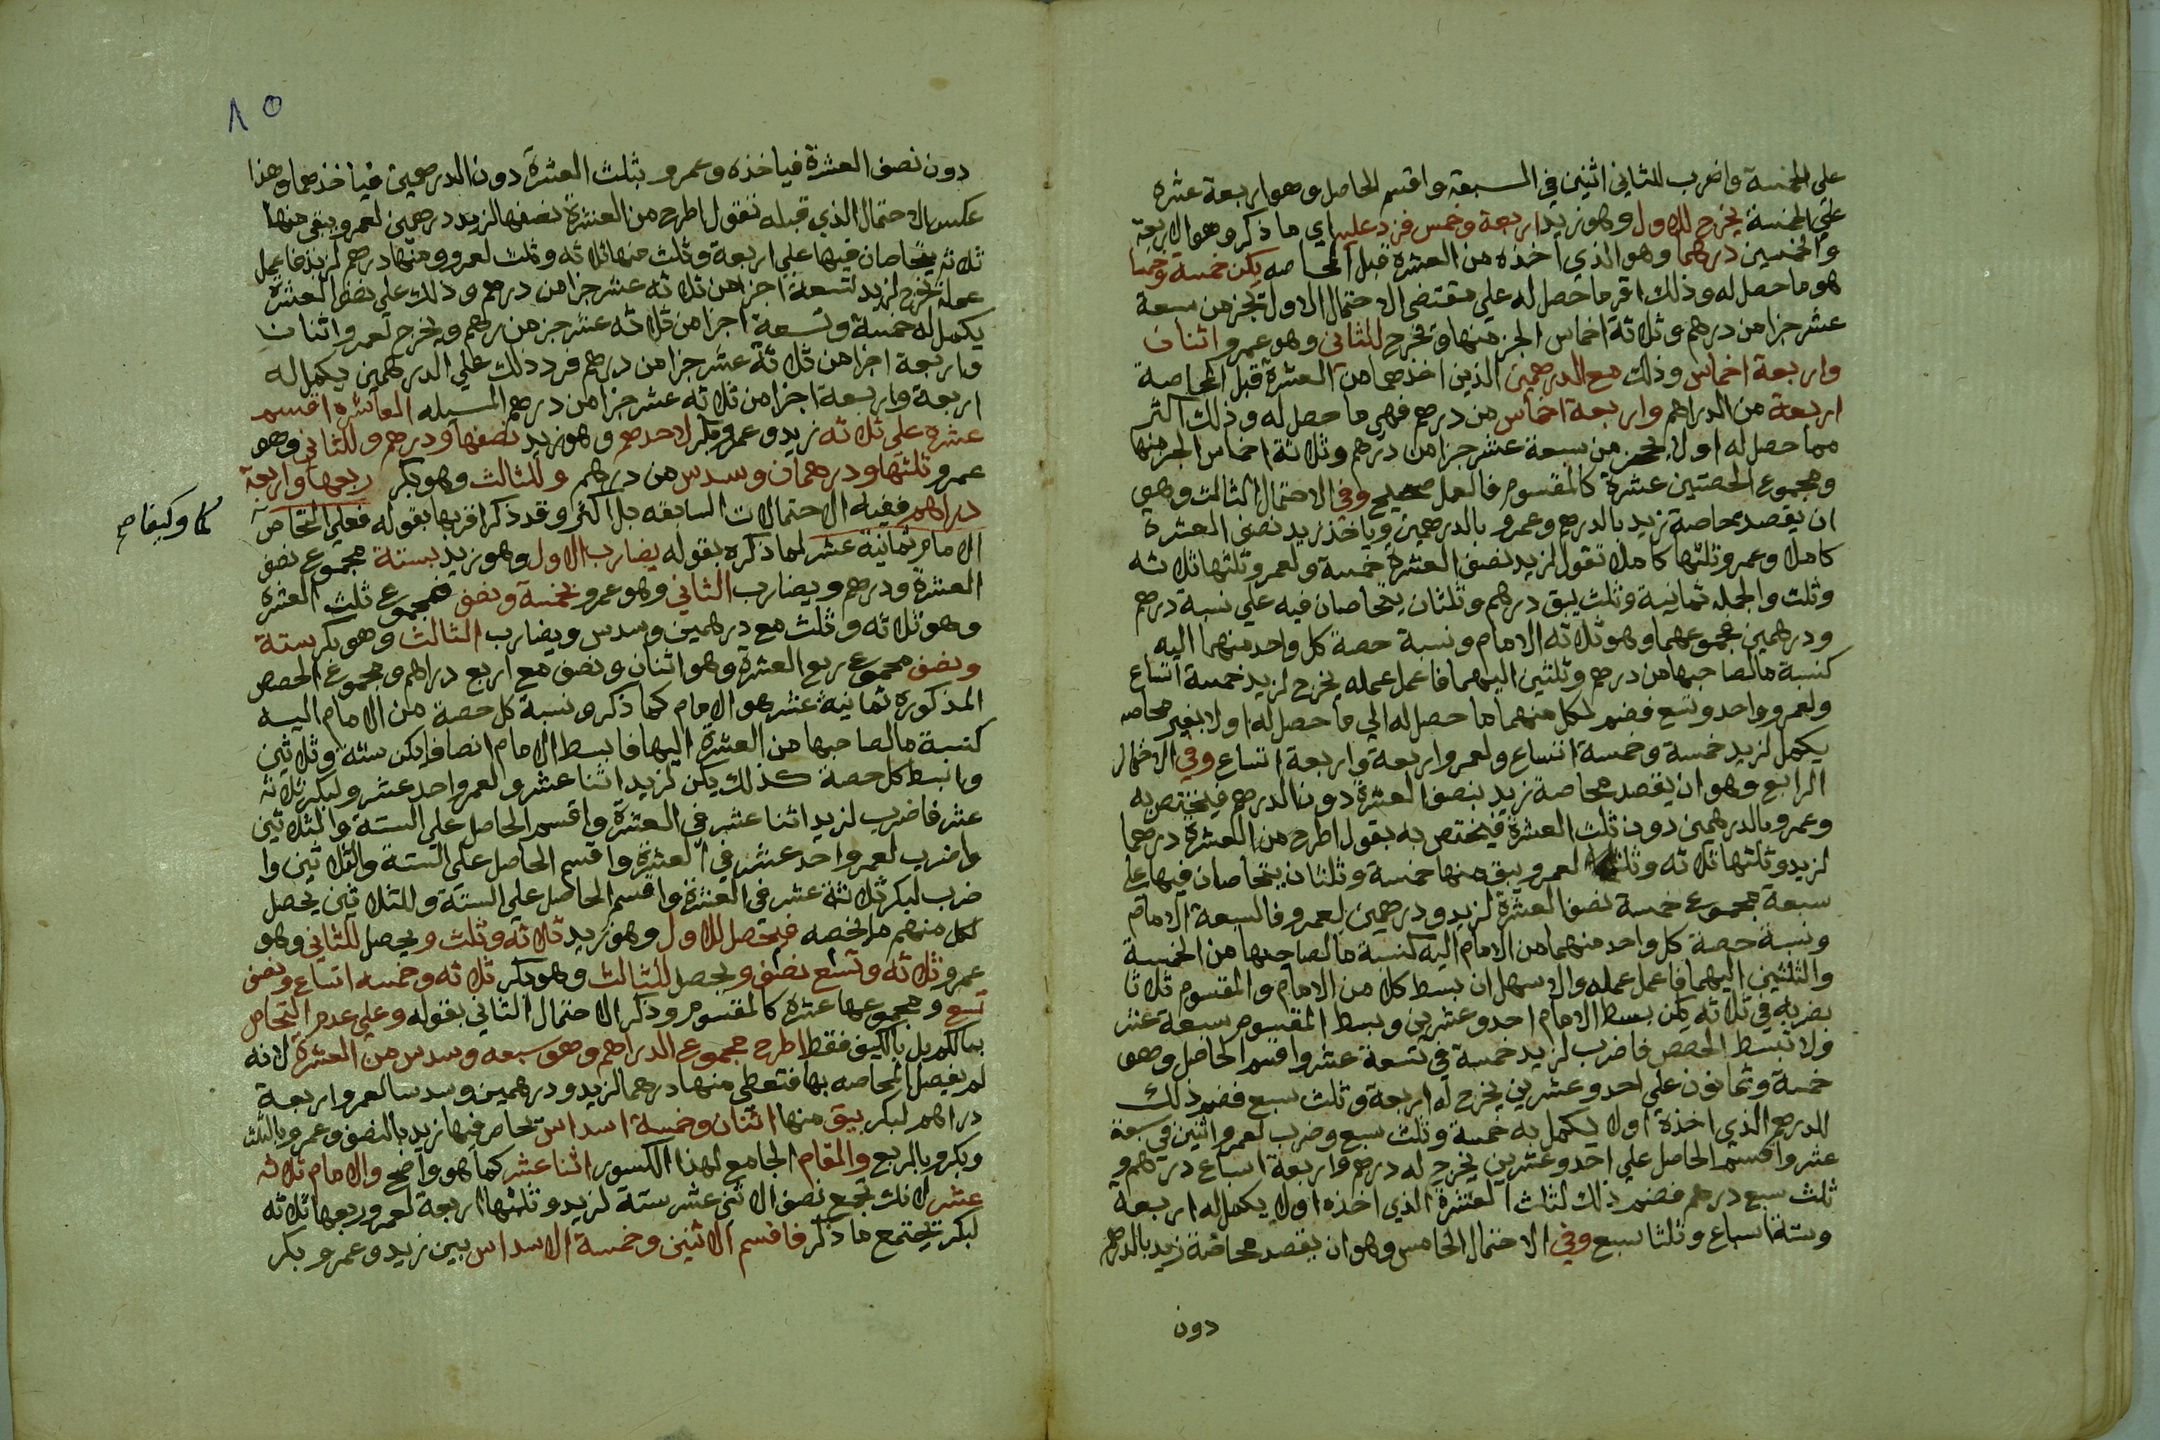 على الخمسة واضرب للثاني اثنين في السبعة واقسم الحاصل وهو اربعة عشره
على الخمسة يخرج للاول وهو زيد اربعة وخمس فزد عليه اي ما ذكر وهو الاربعة
والخمسين درهما وهو الذي اخذه من العشرة قبل المحاصه يكن خمسة وخمسا
هو ما حصل له وذلك اقر ما حصل له على مقتضى الاحتمال الاول بجز من سبعة
عشر جزا من درهم وثلاثة اخماس الجز منها ويخرج للثاني وهو عمرو اثنان
واربعة اخماس وذلك مع الدرهمين الذين اخذهما من العشرة قبل المحاصة
اربعة من الدراهم واربعة اخماس من درهم فهي ما حصل له وذلك اكثر
مما حصل له اولا بجز من سبعة عشر جزا من درهم وثلاثة اخماس الجز منها
ومجموع الحصتين عشرة كالمقسوم فالعمل صحيح وفي الاحتمال الثالث وهي
ان يقصد محاصة زيد بالدرهم وعمرو بالدرهمين وياخذ زيد نصف العشرة
كاملا وعمرو ثلثها كاملا تقول لزيد نصف العشرة خمسة ولعمرو ثلثها ثلاثه
وثلث والجمله ثمانية وثلث يبق درهم وثلثان يتحاصان فيه على نسبة درهم
ودرهمين مجموعهما وهو ثلاثه الامام ونسبة حصة كل واحد منهما اليه
كنسبة ما لصاحبها من درهم وثلثين اليهما فاعمل عمله يخرج لزيد خمسة اتساع
ولعمرو واحد وتسع فضم لكل منهما ما حصل له الي ما حصل له اولا بغير محاصه
يكمل لزيد خمسة وخمسة اتساع ولعمرو اربعة واربعة اتساع وفي الاحتمال
الرابع وهو ان يقصد محاصة زيد بنصف العشرة دون الدرهم فيختص به
وعمرو بالدرهمين دون ثلث العشرة فيختص به بقول اطرح من العشرة درهما
لزيد وثلثها ثلاثه وثلث لعمرو يبق منها خمسة وثلثان يتحاصان فيها على
سبعة مجموع خمسة نصف العشرة لزيد ودرهمين لعمرو فالسبعة الامام
ونسبة حصة كل واحد منهما من الامام اليه كنسبة ما لصاحبها من الخمسة
والثلثين اليهما فاعمل عمله والاسهل ان بسط كلا من الامام والمقسوم ثلاثا
بضربه في ثلاثه يكن بسط الامام احد وعشرين وبسط المقسوم سبعة عشر
ولا تبسط الحصص فاضرب لزيد خمسة في تسعة عشر واقسم الحاصل وهو
خمسة وثمانون على احد وعشرين يخرج له اربعة وثلث سبع فضم ذلك
للدرهم الذي اخذه اولا يكمل به خمسة وثلث سبع وضرب لعمرو اثنين في سبعة
عشر واقسم الحاصل على احد وعشرين يخرج له درهم واربعة اسباع درهم و
ثلث سبع درهم فضم ذلك لثلث العشرة الذي اخذه اولا يكمل له اربعة
وستة اسباع وثلثا سبع وفي الاحتمال الخامس وهو ان يقصد محاصة زيد بالدرهم
دون
٨٥
دون نصف العشرة فياخذه وعمرو بثلث العشرة دون الدرهمين فياخذهما وهذا
عكس الاحتمال الذي قبله نقول اطرح من العشرة نصفها لزيد درهمين لعمرو يبقى منها
ثلاثه يتحاصان فيها على اربعة وثلث منها ثلاثه وثلث لعمرو ومنها درهم لزيد فاعمل
عمله يخرج لزيد تسعة اجزا من ثلاثه عشر جزا من درهم وذلك على نصف العشرة
يكمل له خمسة وتسعة اجزا من ثلاثه عشر جز من درهم ويخرج لعمرو اثنان
واربعة اجزا من ثلاثة عشر جزا من درهم فزد ذلك على الدرهمين يكمل له
اربعة واربعة اجزا من ثلاثه عشر جزا من درهم المسيله العاشره اقسم
عشره على ثلاثه زيد وعمرو وبكر لاحدهم وهو زيد نصفها ودرهم وللثاني وهو
عمرو ثلثها ودرهمان وسدس من درهم وللثالث وهو بكر ربعها واربعة
دراهم ففيه الاحتمالات السابقه بل اكثر وقد ذكر اقربها بقوله فعلى التحاصّ
كما وكيفا صح
الامام ثمانية عشر لما ذكره بقوله يضارب الاول وهو زيد بستة مجموع نصف
العشرة ودرهم ويضارب الثاني وهو عمرو بخمسة ونصف مجموع ثلث العشرة
وهو ثلاثه وثلث مع درهمين وسدس ويضارب الثالث وهو بكر بستة
ونصف مجموع ربع العشرة وهو اثنان ونصف مع اربع دراهم ومجموع الحصص
المذكورة ثمانية عشر هو الامام كما ذكر ونسبة كل حصة من الامام اليه
كنسبة ما لصاحبها من العشرة اليها فابسط الامام انصافا يكن ستة وثلاثين
وابسط كل حصة كذلك يكن لزيد اثنا عشر ولعمرو احد عشر ولبكر ثلاثة
عشر فاضرب لزيد اثنا عشر في العشرة واقسم الحاصل على الستة والثلاثين
واضرب لعمرو احد عشر في العشرة واقسم الحاصل على الستة والثلاثين وا
ضرب لبكر ثلاثة عشر في العشرة واقسم الحاصل على الستة والثلاثين يحصل
لكل منهم ما يخصه فيحصل للاول وهو زيد ثلاثة وثلث ويحصل للثاني وهو
عمرو ثلاثه وتسع نصف ويحصل للثالث وهو بكر ثلاثه وخمسه اتساع ونصف
تسع ومجموعها عشره كالمقسوم وذكر الاحتمال الثاني بقوله وعلى عدم التحاص
بالكم بل بالكيف فقط اطرح مجموع الدراهم وهو سبعه وسدس من العشرة لانه
لم يفصل المحاصه بها فتعطى منها درهما لزيد ودرهمين وسدسا لعمرو اربعة
دراهم لبكر يبق منها اثنان وخمسة اسداس تحاص فيها زيد بالنصف وعمرو بالثلث
وبكر وبالربع والمقام الجامع لهذا الكسور اثنا عشر كما هو واضح والامام ثلاثه
عشر لانك تجمع نصف الاثني عشر ستة لزيد وثلثها اربعة لعمرو وربعها ثلاثه
لبكر يجتمع ما ذكر فاقسم الاثنين وخمسة الاسداس بين زيد وعمرو وبكر